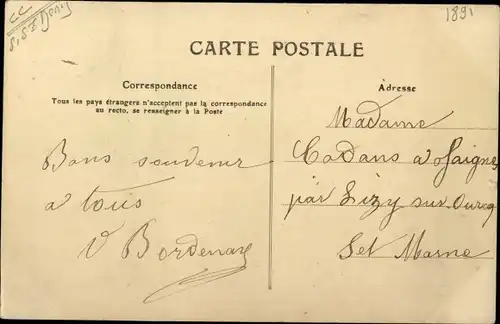 1891
CARTE POSTALE
Correspondance
Tous les pays étrangers n'acceptent pas la correspondance
au recto, se renseigner à la Poste
Adresse
Bons souvenir
a tous
V Bordenave
Madame
Codans a Jaignes
par Lizy sur Ourcq
Set Marne